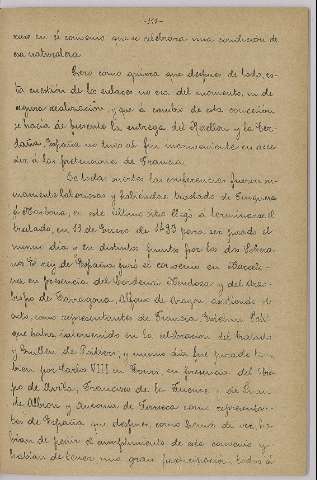 -151-
cuso en el convenio que se celebrara una condición de
esa naturaleza.
Pero como quiera que despues de todo, es-
ta cuestión de los enlaces no era del momento, ni de
segura realización, y que a cambio de esta concesion
se hacía de presente la entrega del Rosellon y la Cer-
daña, España no tuvo al fin inconveniente en acce-
der á las pretensiones de Francia.
De todas suertes las conferencias fueron su-
mamente laboriosas y habiéndose trasladado de Figueras
á Narbona, en este último sitio llegó á terminarse el
tratado, en 19 de Enero de 1493 para ser jurado el
mismo dia y en distintos puntos por los dos Sobera-
nos. El rey de España juró el convenio en Barcelo-
na en presencia del Cardenal Mendoza y del Arzo-
bispo de Zaragoza, Alfonso de Aragon asistiendo al
acto, como representantes de Francia
que había intervenido en la celebracion del tratado
y Guillen de Poitiers, y mismo dia fué jurado tam-
bien por Carlos VIII en Tours, en presencia del Obis-
po de Avila, Francisco de la Fuente y de Juan
de Albion y Antonio de Ferrera como representan-
tes de España que despues, como hemos de ver, ha-
bian de pedir el cumplimiento de este convenio y
habían de tener una gran participación, todos á